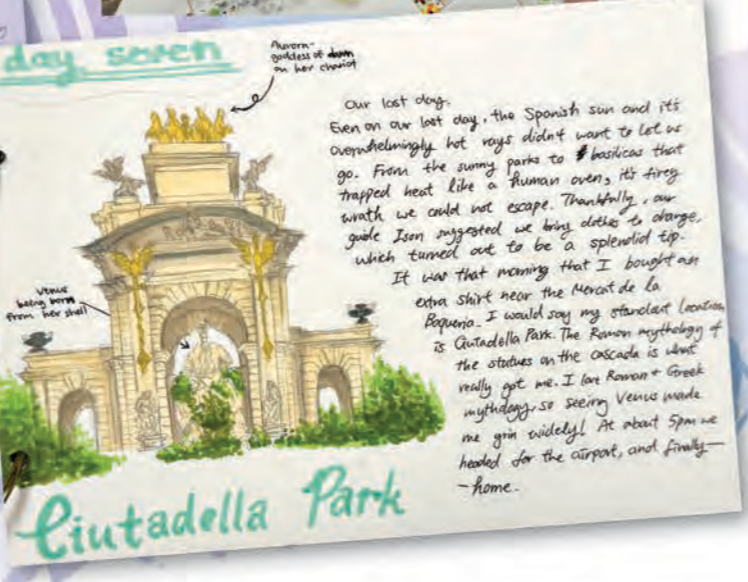 day seven
Aurora-
goddess of dawn
on her chariot
Our last day.
Even on our last day, the Spanish sun and it's
overwhelmingly hot rays didn't want to let us
go. From the sunny parks to basilicas that
trapped heat like a human oven, it's firey
wrath we could not escape. Thankfully, our
guide Ison suggested we bring clothes to change,
which turned out to be a splendid tip.
It was that morning that I bought an
extra shirt near the Mercat de la
Boqueria. I would say my standout location
is Ciutadella Park. The Roman mythology of
the statues on the cascada is what
really got me. I love Roman + Greek
mythology, so seeing Venus made
me grin widely! At about 5pm we
headed for the airport, and finally—
—home.
Venus
being born
from her shell
Ciutadella Park